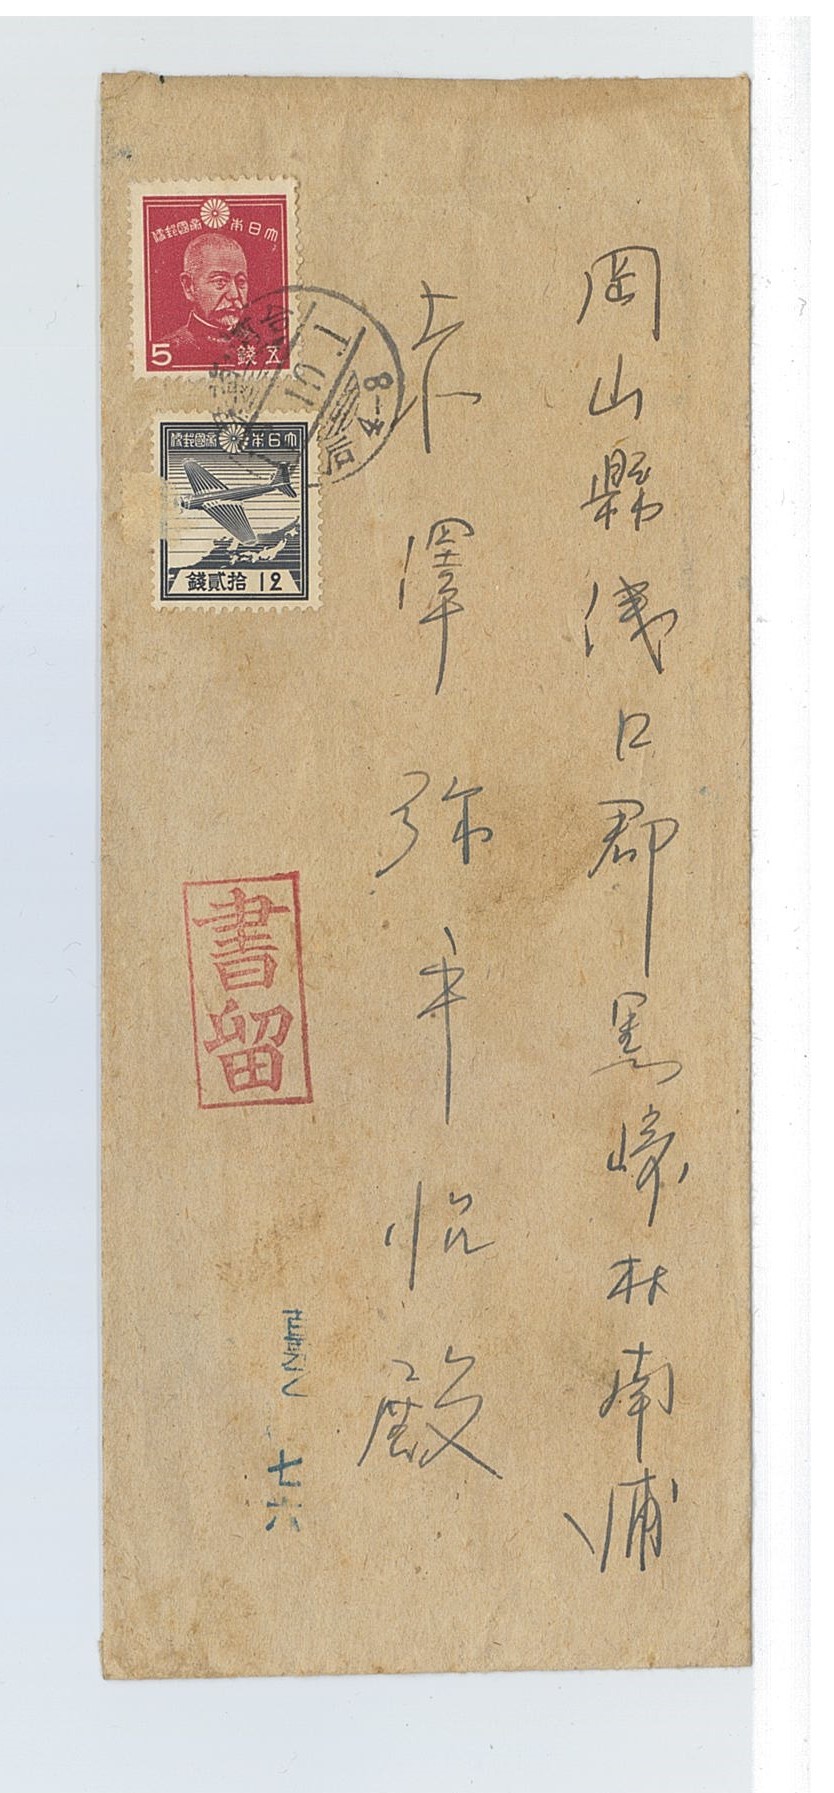 岡山縣浅口郡黒崎村南浦
赤澤弥平治殿
大日本帝國郵便
五錢
5
大日本帝國郵便
拾貳錢
12
書留
七六